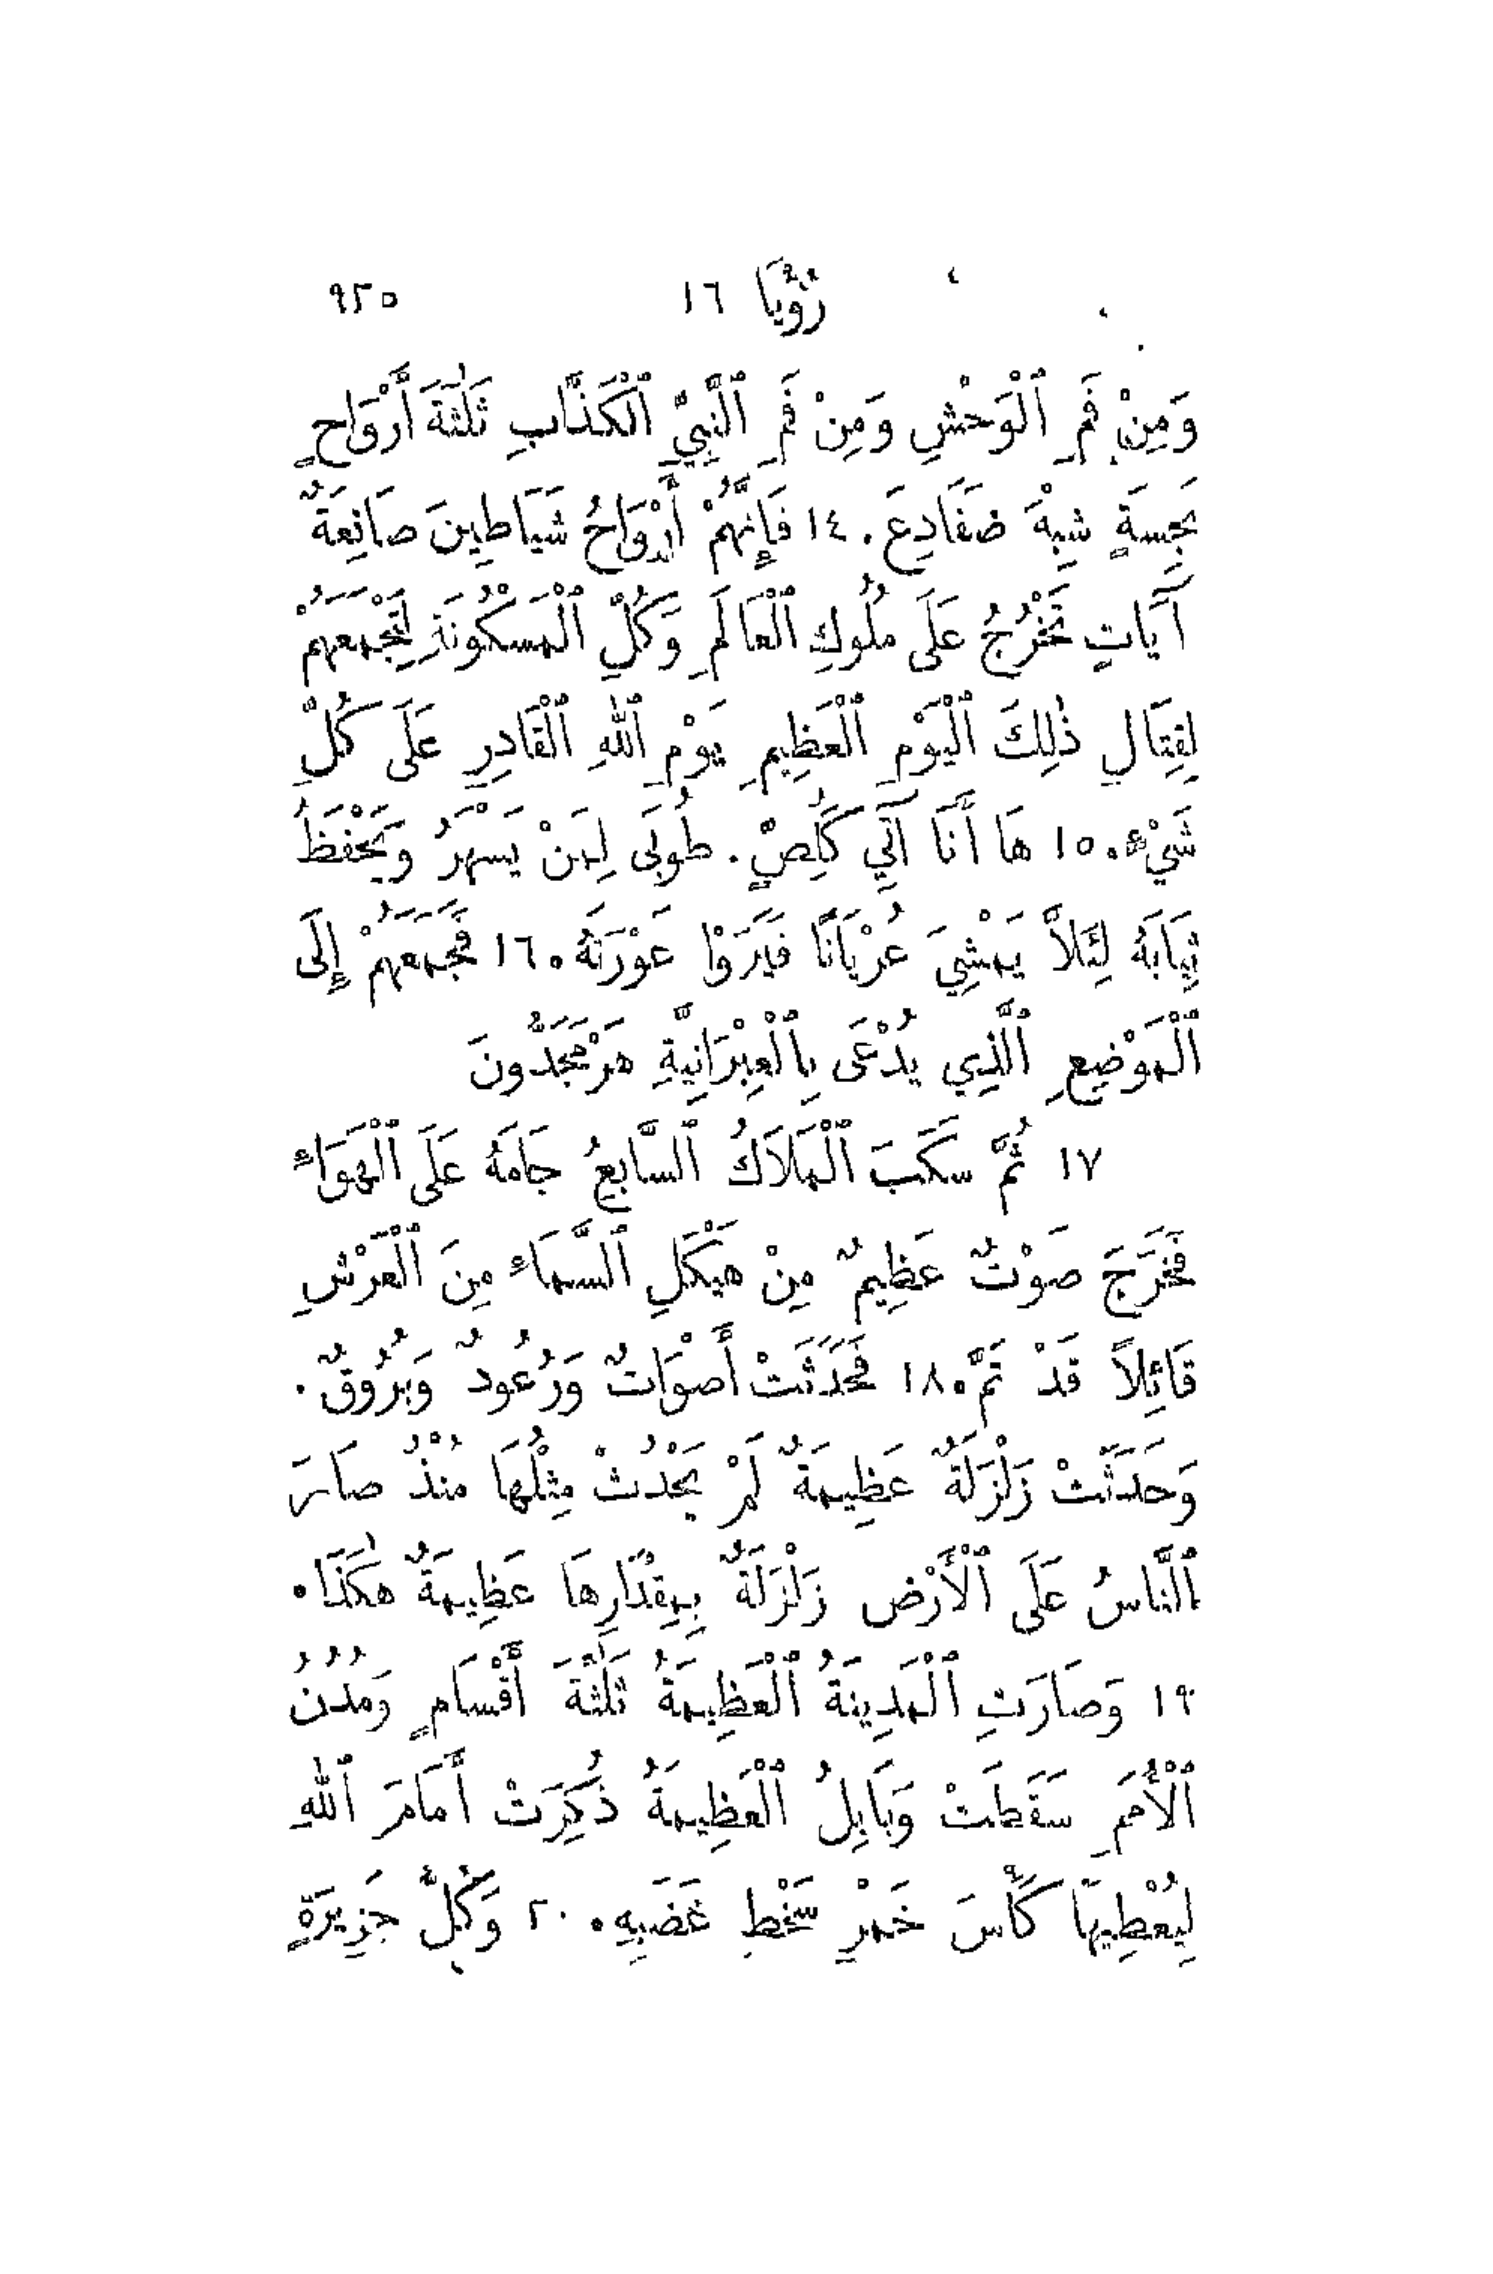 رُؤْيَا ١٦ ٩٢٥
وَمِنْ فَمِ ٱلْوَحْشِ وَمِنْ فَمِ ٱلنَّبِيِّ ٱلْكَذَّابِ ثَلٰثَةَ أَرْوَاحٍ
نَجِسَةٍ شِبْهَ ضَفَادِعَ. ١٤ فَإِنَّهُمْ أَرْوَاحُ شَيَاطِينَ صَانِعَةٌ
آيَاتٍ تَخْرُجُ عَلَى مُلُوكِ ٱلْعَالَمِ وَكُلِّ ٱلْمَسْكُونَةِ لِتَجْمَعَهُمْ
لِقِتَالِ ذٰلِكَ ٱلْيَوْمِ ٱلْعَظِيمِ يَوْمِ ٱللّٰهِ ٱلْقَادِرِ عَلَى كُلِّ
شَيْءٍ. ١٥ هَا أَنَا آتِي كَلِصٍّ. طُوبَى لِمَنْ يَسْهَرُ وَيَحْفَظُ
ثِيَابَهُ لِئَلاَّ يَمْشِيَ عُرْيَانًا فَيَرَوْا عَوْرَتَهُ. ١٦ فَجَمَعَهُمْ إِلَى
ٱلْمَوْضِعِ ٱلَّذِي يُدْعَى بِٱلْعِبْرَانِيَّةِ هَرْمَجَدُّونَ
١٧ ثُمَّ سَكَبَ ٱلْمَلاَكُ ٱلسَّابِعُ جَامَهُ عَلَى ٱلْهَوَاءِ
فَخَرَجَ صَوْتٌ عَظِيمٌ مِنْ هَيْكَلِ ٱلسَّمَاءِ مِنَ ٱلْعَرْشِ
قَائِلاً قَدْ تَمَّ. ١٨ فَحَدَثَتْ أَصْوَاتٌ وَرُعُودٌ وَبُرُوقٌ.
وَحَدَثَتْ زَلْزَلَةٌ عَظِيمَةٌ لَمْ يَحْدُثْ مِثْلُهَا مُنْذُ صَارَ
ٱلنَّاسُ عَلَى ٱلْأَرْضِ زَلْزَلَةٌ بِمِقْدَارِهَا عَظِيمَةٌ هٰكَذَا.
١٩ وَصَارَتِ ٱلْمَدِينَةُ ٱلْعَظِيمَةُ ثَلٰثَةَ أَقْسَامٍ وَمُدُنُ
ٱلْأُمَمِ سَقَطَتْ وَبَابِلُ ٱلْعَظِيمَةُ ذُكِرَتْ أَمَامَ ٱللّٰهِ
لِيُعْطِيَهَا كَأْسَ خَمْرِ سَخَطِ غَضَبِهِ. ٢٠ وَكُلُّ جَزِيرَةٍ